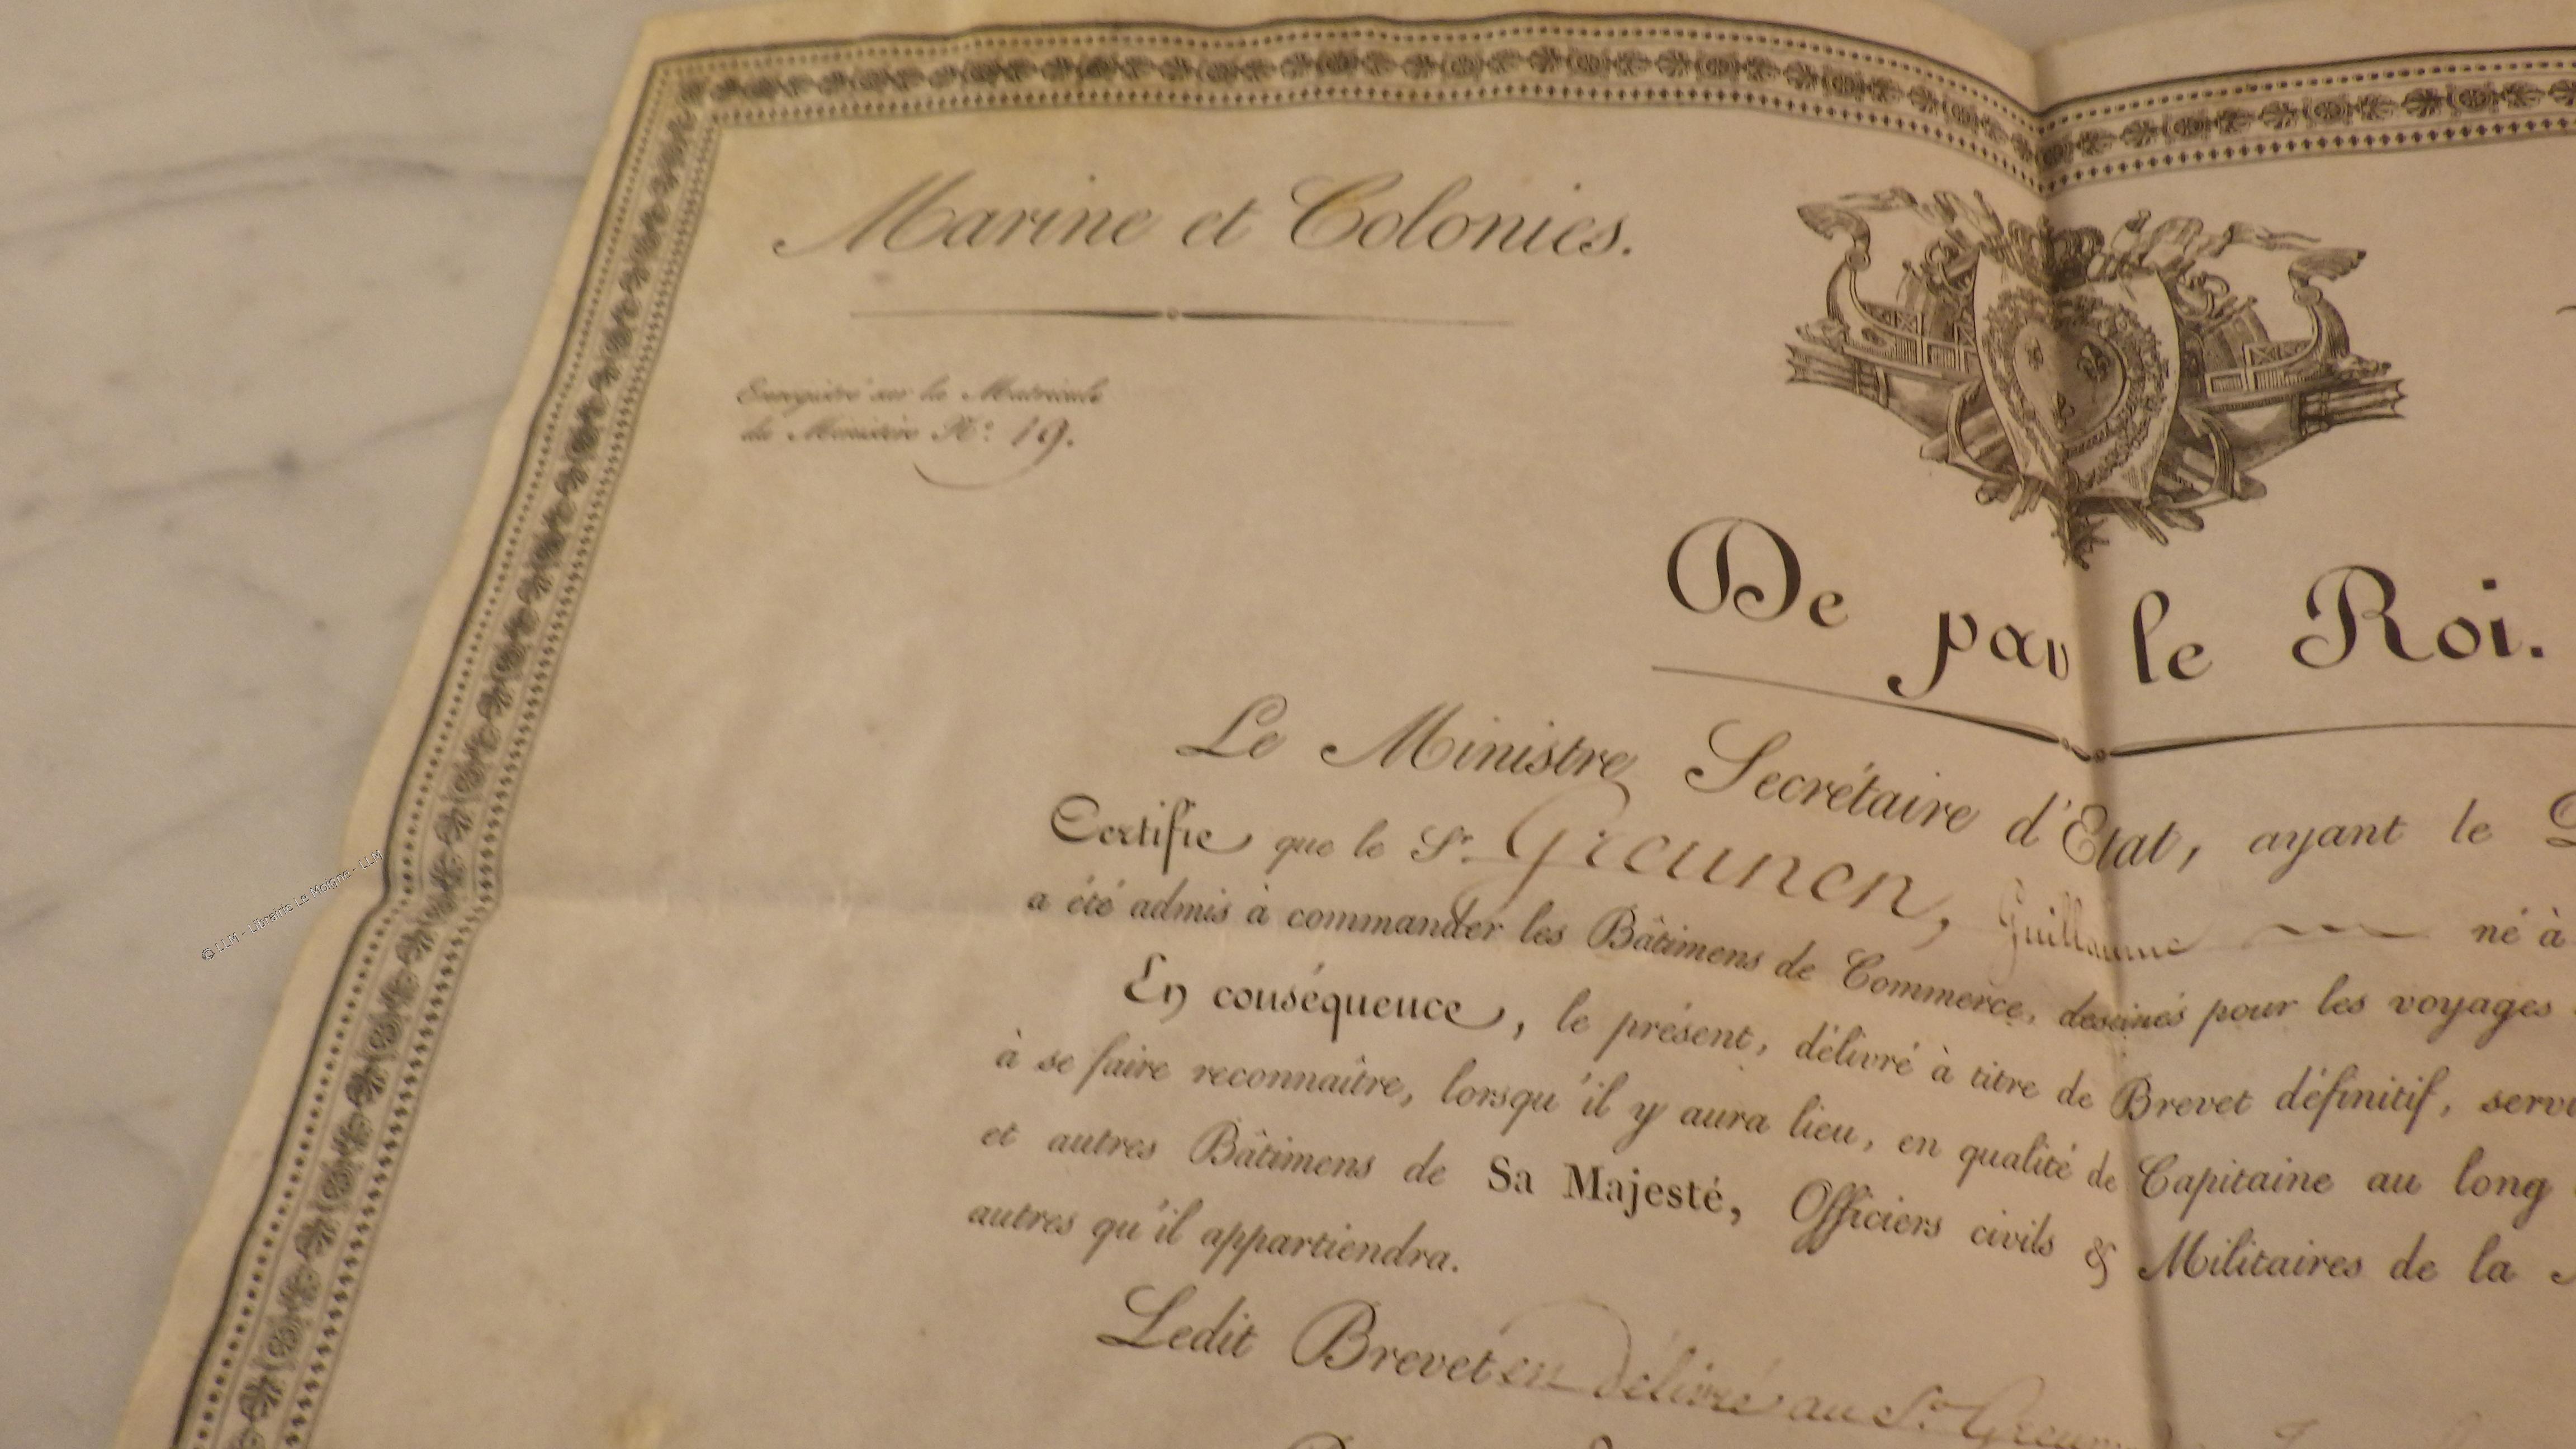 Marine et Colonies.
Enregistré sur la Matricule
du Ministère N.º 19.
De par le Roi.
Le Ministre Secrétaire d'Etat, ayant le
Certifie que le Sr. Greunen, Guillaume né à
a été admis à commander les Bâtimens de Commerce, destinés pour les voyages
En conséquence, le présent, délivré à titre de Brevet définitif,
à se faire reconnaître, lorsqu'il y aura lieu, en qualité de Capitaine au long
et autres Bâtimens de Sa Majesté, Officiers civils & Militaires de la
autres qu'il appartiendra.
Ledit Brevet délivré au Sr.
© LLM - Librairie Le Moigne - LLM